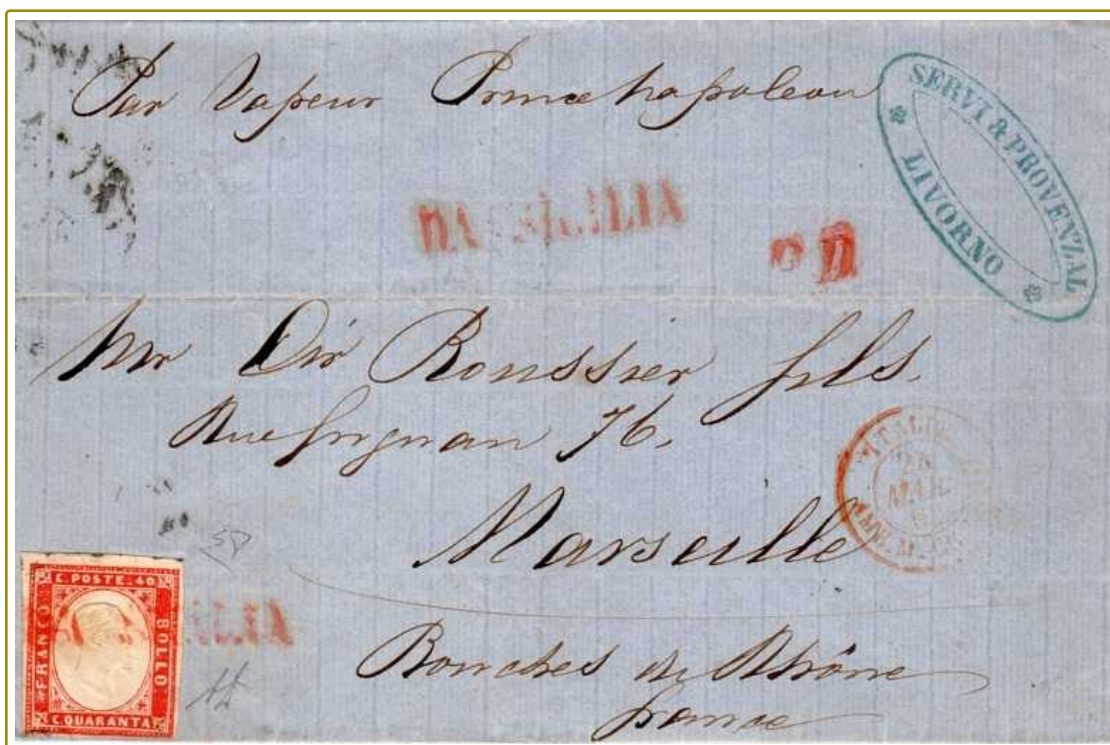 Par Vapeur Prince Napoleon
SERVI & PROVENZAL
LIVORNO
DA SICILIA
P D
Mr Roussier fils.
Rue 76.
ITALIE
Marseille
C. POSTE. 40
FRANCO
BOLLO
C. QUARANTA
Bouches du Rhône
france